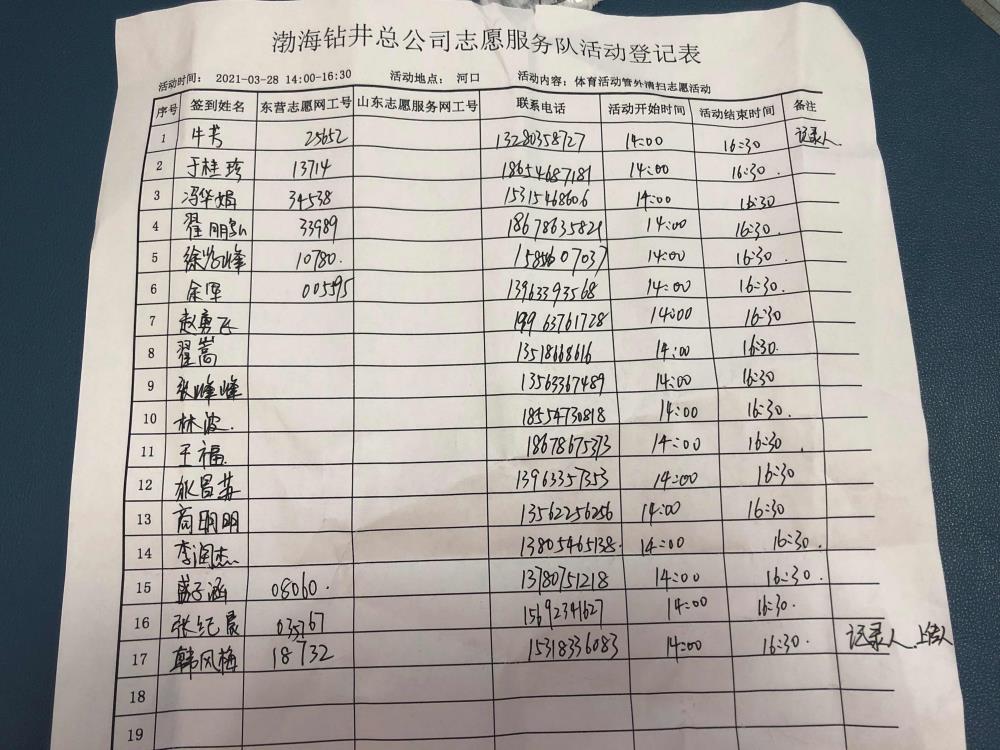 渤海钻井总公司志愿服务队活动登记表
活动时间： 2021-03-28 14:00-16:30 活动地点： 河口 活动内容：体育活动管外清扫志愿活动
序号 签到姓名 东营志愿网工号 山东志愿服务网工号 联系电话 活动开始时间 活动结束时间 备注
1 牛芳 25652 13280358727 14:00 16:30 记录人
2 于桂珍 13714 18654687181 14:00 16:30.
3 冯华娟 34538 15315468606 14:00 16:30
4 翟鹏弘 33989 18678635821 14:00 16:30.
5 徐尚峰 10780. 14:00 16:30.
6 余军 005595 13963393568 14:00 16:30.
7 赵勇飞 19963761728 14:00 16:30
8 翟嵩 13518668616 14:00 16:30.
9 张峰峰 13563367489 14:00 16:30
10 林波. 18554730818 14:00 16:30.
11 王福. 18678675373 14:00 16:30
12 昌苏 13963357353 14:00 16:30
13 商明明 13562256256 14:00 16:30
14 李润杰. 13805465138. 14:00 16:30.
15 盛子涵 08060. 13780751218 14:00 16:30.
16 张纪晨 035767 15692341627 14:00 16:30.
17 韩风梅 18732 15318336083 14:00 16:30. 记录人.上传人
18
19